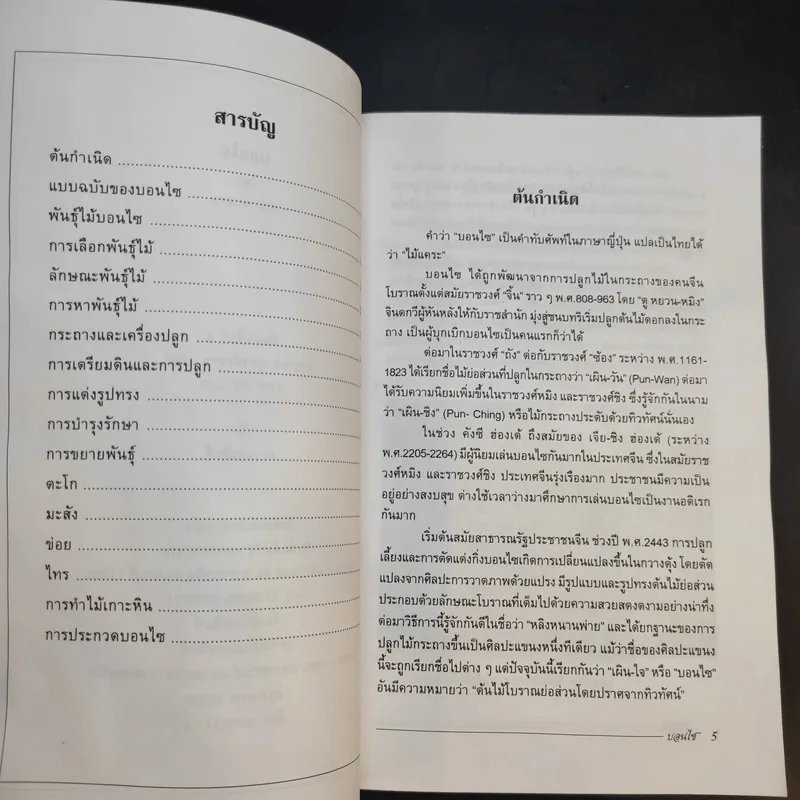 สารบัญ
ต้นกำเนิด
แบบฉบับของบอนไซ
พันธุ์ไม้บอนไซ
การเลือกพันธุ์ไม้
ลักษณะพันธุ์ไม้
การหาพันธุ์ไม้
กระถางและเครื่องปลูก
การเตรียมดินและการปลูก
การแต่งรูปทรง
การบำรุงรักษา
การขยายพันธุ์
ตะโก
มะสัง
ข่อย
ไทร
การทำไม้เกาะหิน
การประกวดบอนไซ
ต้นกำเนิด
คำว่า "บอนไซ" เป็นคำทับศัพท์ในภาษาญี่ปุ่น แปลเป็นไทยได้
ว่า "ไม้แคระ"
บอนไซ ได้ถูกพัฒนาจากการปลูกไม้ในกระถางของคนจีน
โบราณตั้งแต่สมัยราชวงศ์ "จิ้น" ราว ๆ พ.ศ.808-963 โดย "ตู หยวน-หมิง"
จินตกวีผู้หันหลังให้กับราชสำนัก มุ่งสู่ชนบทริเริ่มปลูกต้นไม้ดอกลงในกระ
ถาง เป็นผู้บุกเบิกบอนไซเป็นคนแรกก็ว่าได้
ต่อมาในราชวงศ์ "ถัง" ต่อกับราชวงศ์ "ซ้อง" ระหว่าง พ.ศ.1161-
1823 ได้เรียกชื่อไม้ย่อส่วนที่ปลูกในกระถางว่า "เผิน-วัน" (Pun-Wan) ต่อมา
ได้รับความนิยมเพิ่มขึ้นในราชวงศ์หมิง และราชวงศ์ชิง ซึ่งรู้จักกันในนาม
ว่า "เผิน-ชิง" (Pun- Ching) หรือไม้กระถางประดับด้วยทิวทัศน์นั่นเอง
ในช่วง คังซี ฮ่องเต้ ถึงสมัยของ เจีย-ชิง ฮ่องเต้ (ระหว่าง
พ.ศ.2205-2264) มีผู้นิยมเล่นบอนไซกันมากในประเทศจีน ซึ่งในสมัยราช
วงศ์หมิง และราชวงศ์ชิง ประเทศจีนรุ่งเรืองมาก ประชาชนมีความเป็น
อยู่อย่างสงบสุข ต่างใช้เวลาว่างมาศึกษาการเล่นบอนไซเป็นงานอดิเรก
กันมาก
เริ่มต้นสมัยสาธารณรัฐประชาชนจีน ช่วงปี พ.ศ.2443 การปลูก
เลี้ยงและการตัดแต่งกิ่งบอนไซเกิดการเปลี่ยนแปลงขึ้นในกวางตุ้ง โดยดัด
แปลงจากศิลปะการวาดภาพด้วยแปรง มีรูปแบบและรูปทรงต้นไม้ย่อส่วน
ประกอบด้วยลักษณะโบราณที่เต็มไปด้วยความสวยสดงดงามอย่างน่าทึ่ง
ต่อมาวิธีการนี้รู้จักกันดีในชื่อว่า "หลิงหนานพ่าย" และได้ยกฐานะของการ
ปลูกไม้กระถางขึ้นเป็นศิลปะแขนงหนึ่งทีเดียว แม้ว่าชื่อของศิลปะแขนง
นี้จะถูกเรียกชื่อไปต่าง ๆ แต่ปัจจุบันนี้เรียกกันว่า "เผิน-ไจ" หรือ "บอนไซ"
อันมีความหมายว่า "ต้นไม้โบราณย่อส่วนโดยปราศจากทิวทัศน์"
บอนไซ 5